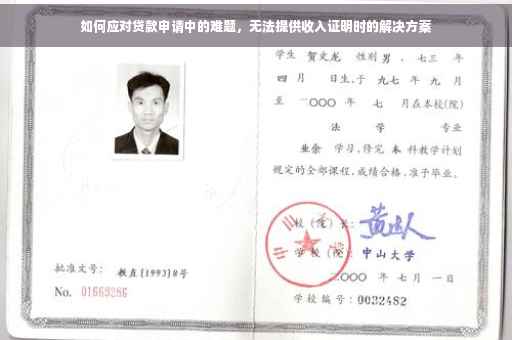 如何应对贷款申请中的难题，无法提供收入证明时的解决方案
学生 贺文龙 性别 男，七三 年
四 月 日生,于 九七 年 九 月
至 二〇〇〇 年 七 月在本校(院)
法 学 专业
业余 学习,修完 本 科教学计划
规定的全部课程,成绩合格,准予毕业。
校(院)长:
学校(院): 中山大学
二〇〇〇 年 七 月 一 日
批准文号: 教直[1993]8号
No. 01669286
学校编号: 0032482